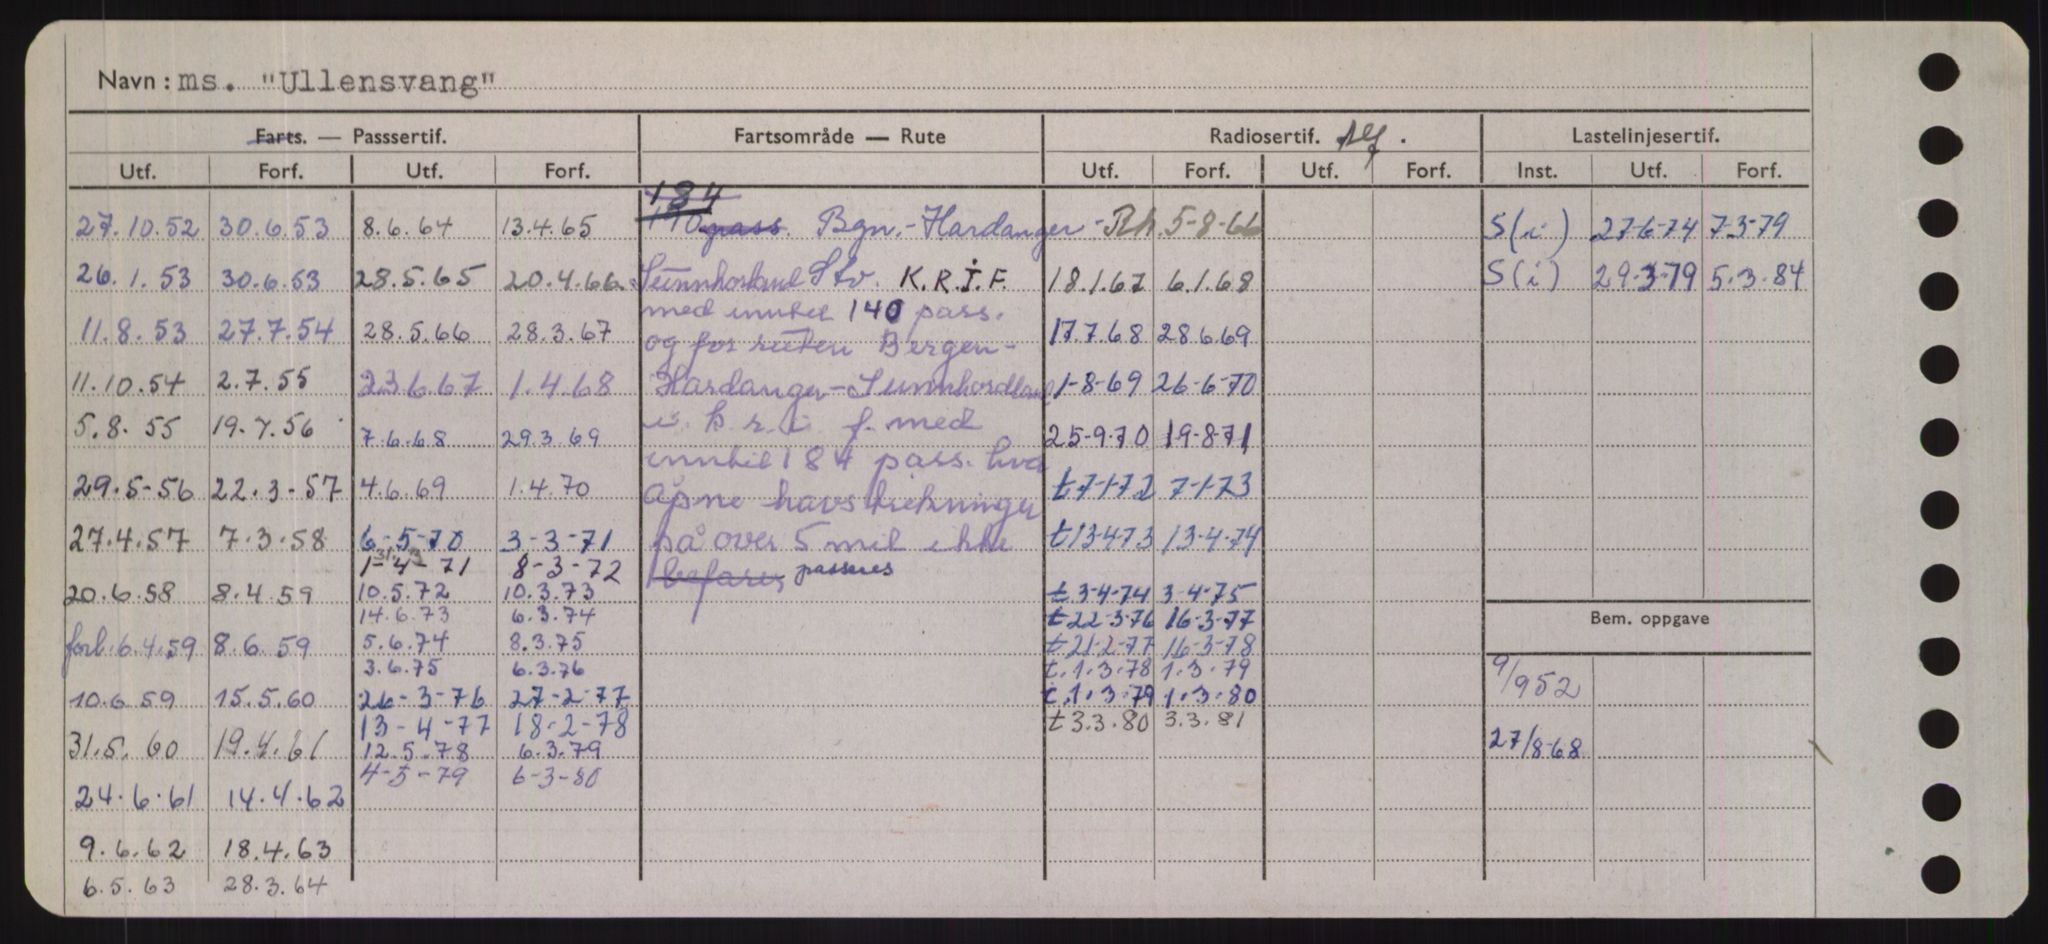 Navn: ms. "Ullensvang"
Farts. — Passsertif. Fartsområde — Rute Radiosertif. Lastelinjesertif.
Utf. Forf. Utf. Forf. Utf. Forf. Utf. Forf. Inst. Utf. Forf.
184
27.10.52 30.6.53 8.6.64 13.4.65 170 pass. Bgn.-Hardanger - Rh. 5-8-66 S(i) 27-6-74 7-3-79
26.1.53 30.6.53 28.5.65 20.4.66 Sunnhorland Stv. K.R.I.F. 18.1.67 6.1.68 S(i) 29-3-79 5.3.84
med inntil 140 pass.
11.8.53 27.7.54 28.5.66 28.3.67 og for ruten Bergen- 17.7.68 28.6.69
11.10.54 2.7.55 23.6.67 1.4.68 Hardanger-Sunnhordland 1-8-69 26-6-70
5.8.55 19.7.56 7.6.68 29.3.69 i. k.r.i.f. med 25-9-70 19-8-71
inntil 184 pass. hvor
29.5-56 22.3-57 4.6.69 1.4.70 åpne havstrekninger t7-1-72 7-1-73
27.4.57 7.3.58 6-5-70 3-3-71 på over 5 mil ikke t13-4-73 13-4-74
31.3
1-4-71 8-3-72 befares passeres
20.6.58 8.4.59 10.5.72 10.3.73 t3-4-74 3-4-75
14.6.73 6.3.74 t22-3-76 16-3-77
forl. 6.4.59 8.6.59 5.6.74 8.3.75 t21-2-77 16-3-78
Bem. oppgave
3.6.75 6.3.76 t.1.3.78 1.3.79
10.6.59 15.5.60 26-3-76 27-2-77 t.1.3.79 1.3.80 9/952
13-4-77 18-2-78 t3.3.80 3.3.81
31.5.60 19.4.61 12.5.78 6.3.79 27/8-68
4-5-79 6-3-80
24.6.61 14.4.62
9.6.62 18.4.63
6.5.63 28.3.64